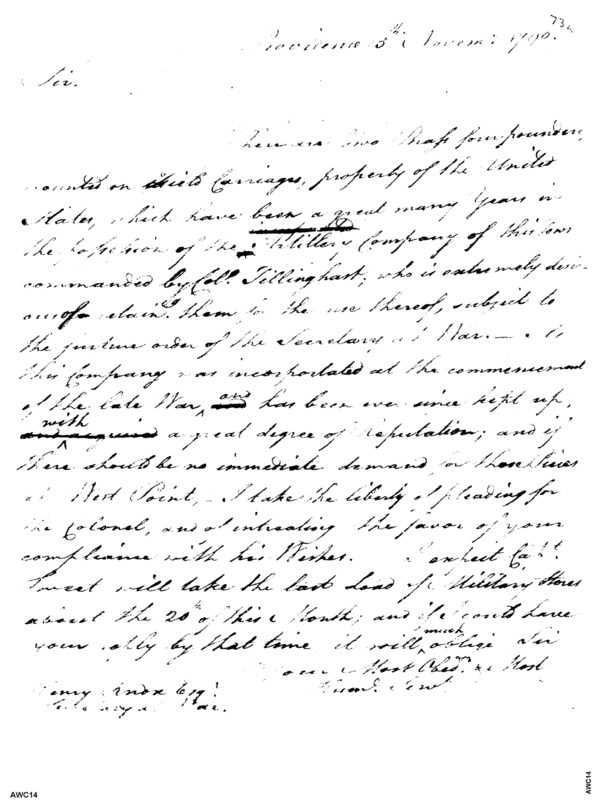 73
Providence 5th Novem: 1790.
Sir.
There are two Brass four pounders,
mounted on Field Carriages, property of the United
States, which have been a great many Years in
the possession of the Artillery Company of this Town
commanded by Coll. Tillinghast; who is extremely desir-
ous of retaing. them for the use thereof, subject to
the future order of the Secretary at War. — As
this Company was incorporated at the commencement
of the late War, and has been ever since kept up,
with
and acquired a great degree of reputation; and if
there should be no immediate demand for those Pieces
at West Point, — I take the liberty of pleading for
the Colonel, and of intreating the favor of your
compliance with his Wishes. I expect Capt.
will take the last Load of Military Stores
about the 20th of this Month; and if I could have
your reply by that time it will much oblige Sir
Your Most Obedt. & Most
Humb. Servt.
Henry Knox Esqr.
Secretary at War.
AWC14
AWC14